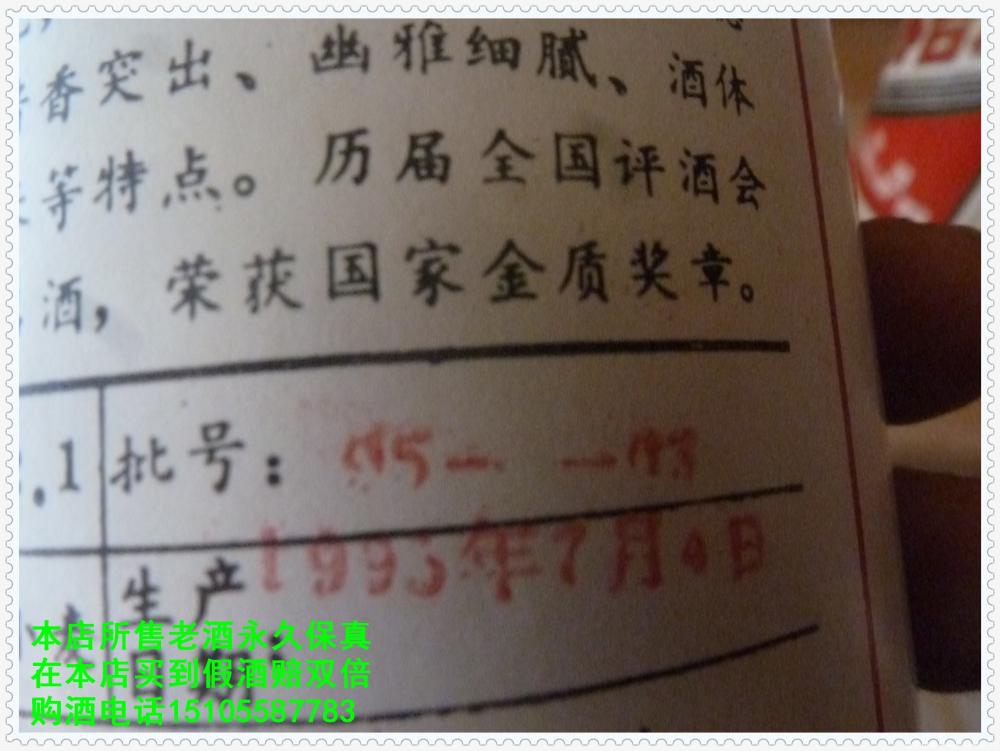 香突出、幽雅细腻、酒体
等特点。历届全国评酒会
酒，荣获国家金质奖章。
.1 批号： 95-
生产 1995年7月4日
日期
本店所售老酒永久保真
在本店买到假酒赔双倍
购酒电话15105587783